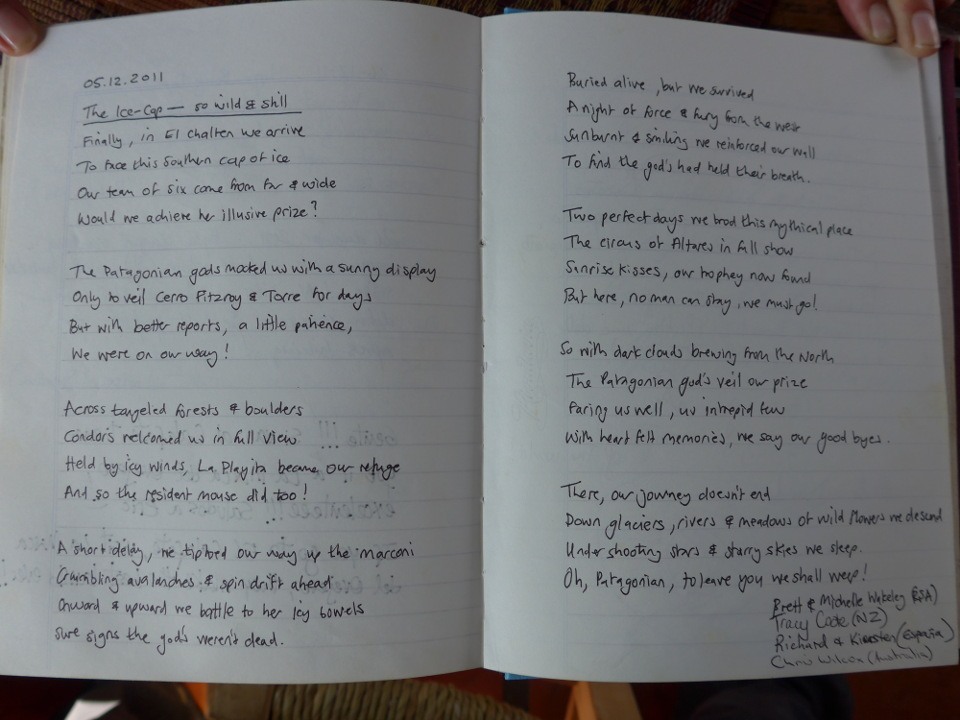 05.12.2011
The Ice-Cap — so wild & still
Finally, in El chalten we arrive
To face this Southern cap of ice
Our team of six come from far & wide
Would we achieve her illusive prize?
The Patagonian gods mocked us with a sunny display
Only to veil Cerro Fitzroy & Torre for days
But with better reports, a little patience,
We were on our way!
Across tangeled forests & boulders
Condors welcomed us in full view
Held by icy winds, La Playita became our refuge
And so the resident mouse did too!
A short delay, we tiptoed our way up the marconi
Crumbling avalanches & spin drift ahead
Onward & upward we battle to her Icy bowels
Sure signs the god's weren't dead.
Buried alive, but we survived
A night of force & fury from the west
Sunburnt & smiling we reinforced our wall
To find the god's had held their breath.
Two perfect days we trod this mythical place
The circus of Altares in full show
Sunrise kisses, our trophey now found
But here, no man can stay, we must go!
So with dark clouds brewing from the North
The Patagonian god's veil our prize
Faring us well, us intrepid few
With heart felt memories, we say our good byes.
There, our journey doesn't end
Down glaciers, rivers & meadows of wild flowers we descend
Under shooting stars & starry skies we sleep.
Oh, Patagonian, to leave you we shall weep!
Brett & Michelle (RSA)
Tracy (NZ)
Richard & Kiersten (España)
Chris Wilcox (Australia)